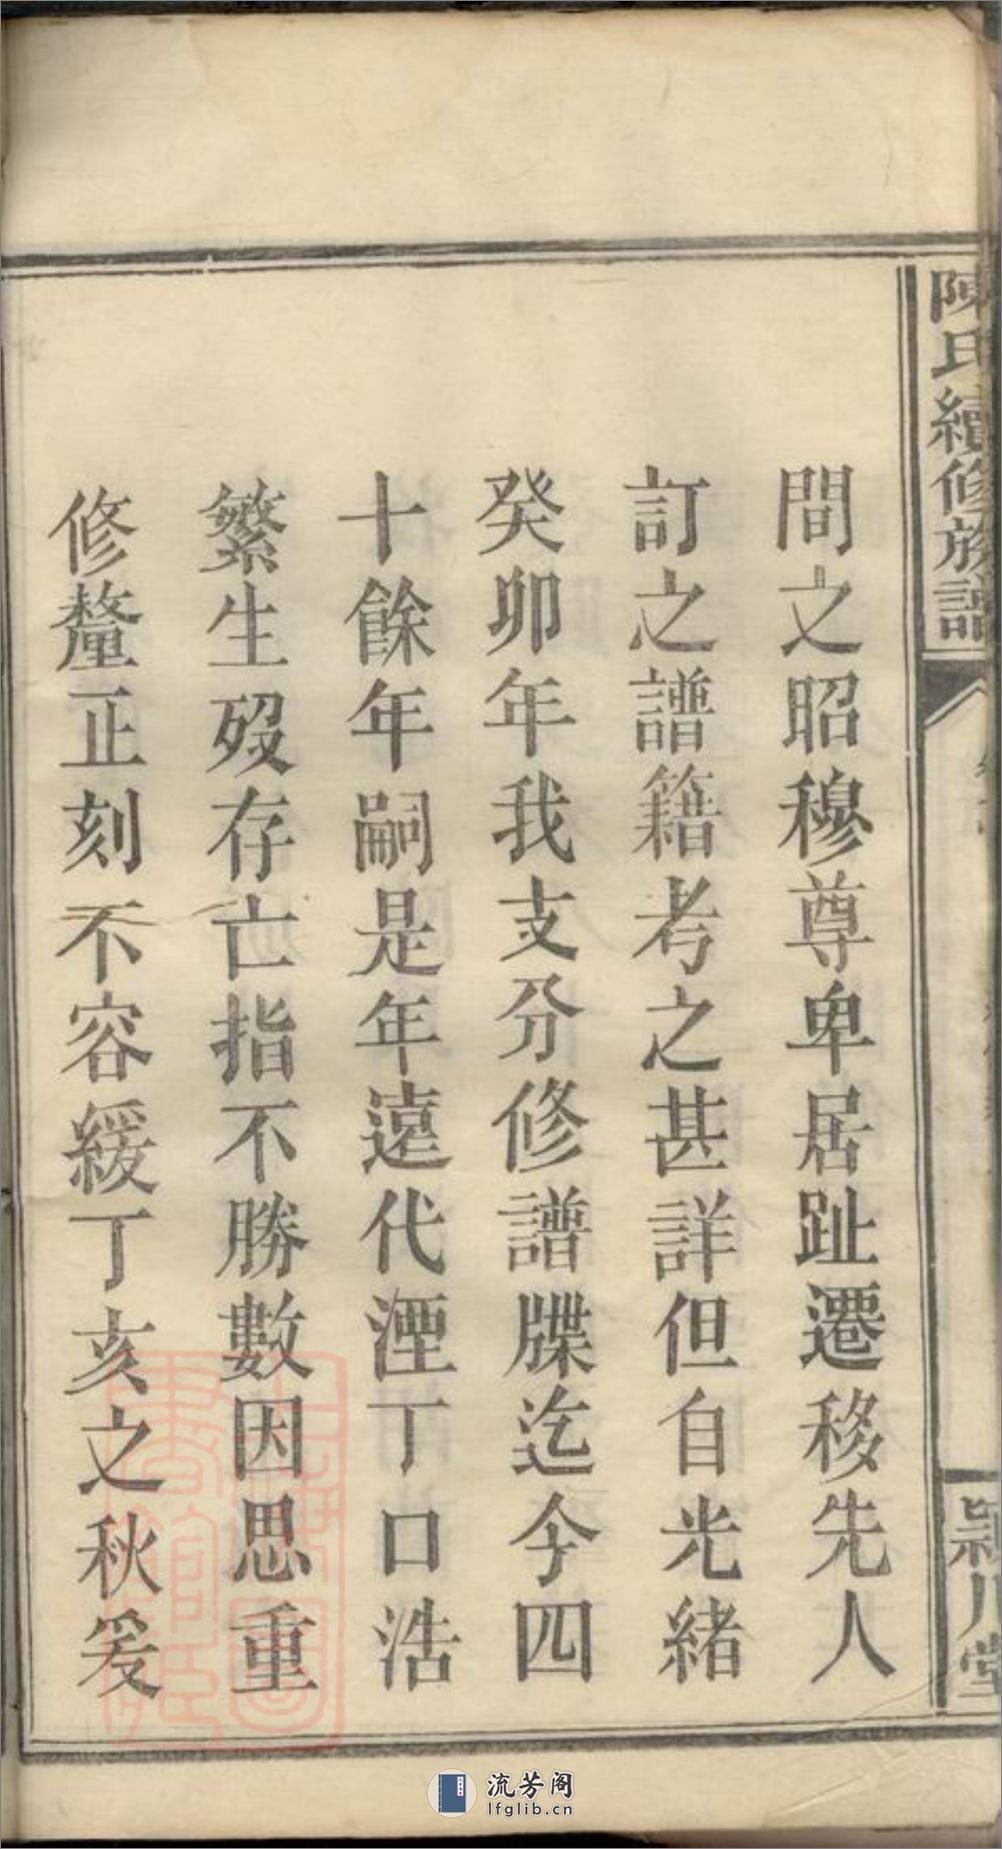 陳氏續修族譜
潁川堂
問之昭穆尊卑居趾遷移先人
訂之譜籍考之甚詳但自光緒
癸卯年我支分修譜牒迄今四
十餘年嗣是年遠代湮丁口浩
繁生歿存亡指不勝數因思重
修釐正刻不容緩丁亥之秋爰
流芳阁
lfglib.cn